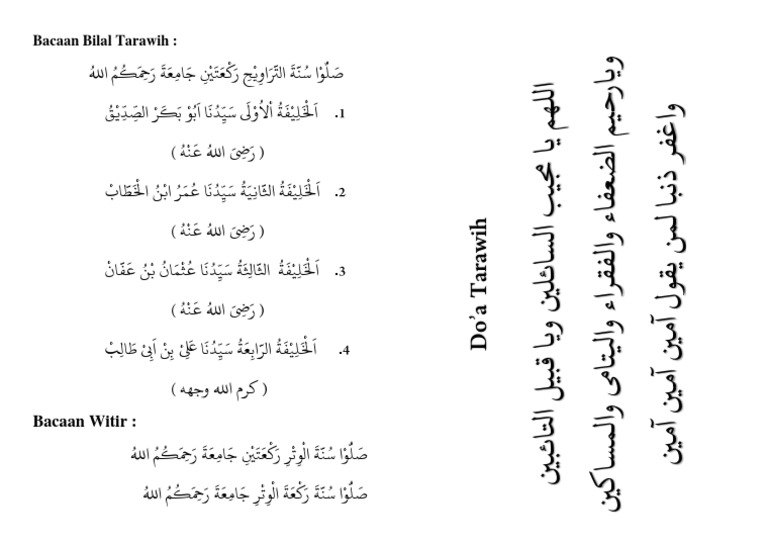 Bacaan Bilal Tarawih :
صَلُّوْا سُنَّةَ التَّرَاوِيْحِ رَكْعَتَيْنِ جَامِعَةَ رَحِمَكُمُ اللهُ
1. اَلْخَلِيْفَةُ اْلاُوْلَى سَيِّدُنَا اَبُوْ بَكَرْ الصِّدِّيْقُ
( رَضِيَ اللهُ عَنْهُ )
2. اَلْخَلِيْفَةُ الثَّانِيَةُ سَيِّدُنَا عُمَرُ ابْنُ الْخَطَّابْ
( رَضِيَ اللهُ عَنْهُ )
3. اَلْخَلِيْفَةُ الثَّالِثَةُ سَيِّدُنَا عُثْمَانُ بْنُ عَفَّانْ
( رَضِيَ اللهُ عَنْهُ )
4. اَلْخَلِيْفَةُ الرَّابِعَةُ سَيِّدُنَا عَلِيْ بِنْ اَبِيْ طَالِبْ
( كرم الله وجهه )
Bacaan Witir :
صَلُّوْا سُنَّةَ الْوِتْرِ رَكْعَتَيْنِ جَامِعَةَ رَحِمَكُمُ اللهُ
صَلُّوْا سُنَّةَ رَكْعَةَ الْوِتْرِ جَامِعَةَ رَحِمَكُمُ اللهُ
Do’a Tarawih
اللهم يا مجيب السائلين ويا قبيل التائبين
ويارحيم الضعفاء والفقراء واليتامى والمساكين
واغفر ذنبا لمن يقول آمين آمين آمين